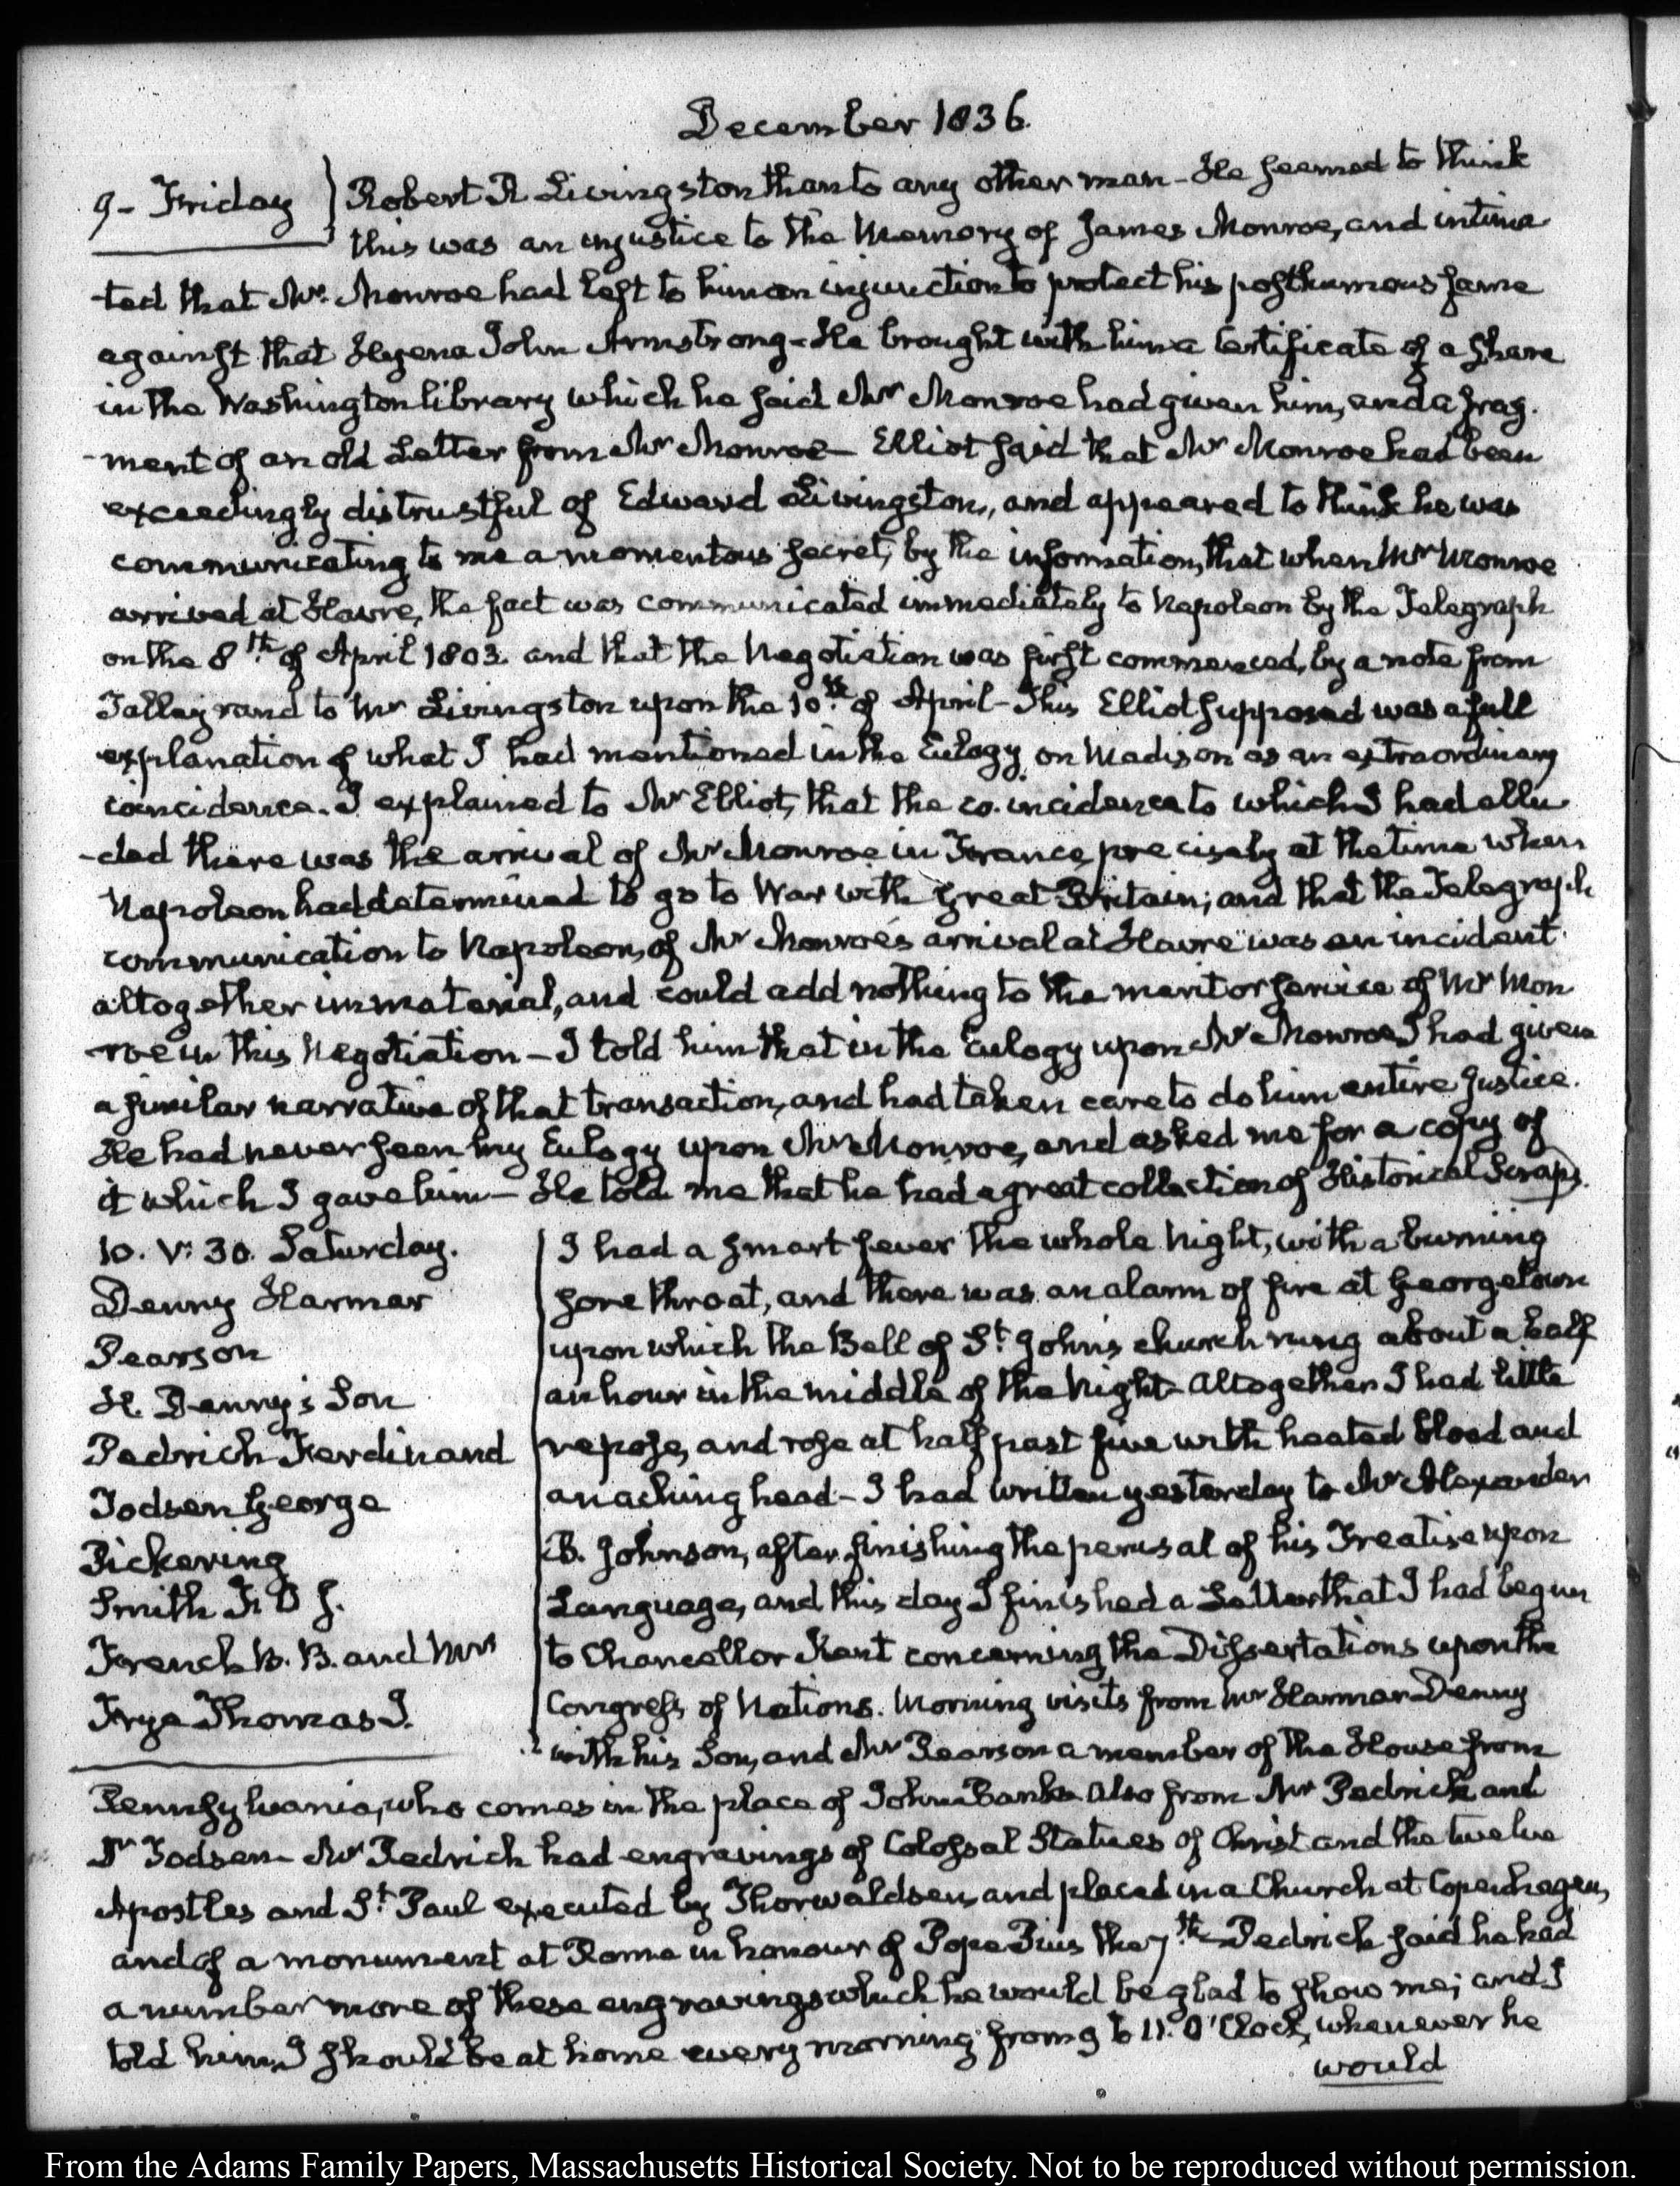 December 1836.
9- Friday } Robert R Livingston than to any other man - He seemed to think
this was an injustice to the Memory of James Monroe, and intima
-ted that Mr. Monroe had left to him an injunction to protect his posthumous fame
against that Hyena John Armstrong - He brought with him a Certificate of a share
in the Washington library which he said Mr Monroe had given him, and a frag.
-ment of an old Letter from Mr Monroe - Elliot said that Mr Monroe had been
exceedingly distrustful of Edward Livingston, and appeared to think he was
communicating to me a momentous secret, by the information, that when Mr Monroe
arrived at Havre, the fact was communicated immediately to Napoleon by the Telegraph
on the 8th of April 1803. and that the Negotiation was first commenced, by a note from
Talleyrand to Mr Livingston upon the 10th of April - This Elliot supposed was a full
explanation of what I had mentioned in the Eulogy on Madison as an extraordinary
coincidence. I explained to Mr Elliot, that the co.incidence to which I had allu
-ded there was the arrival of Mr Monroe in France, precisely at the time when
Napoleon had determined to go to War with Great Britain; and that the Telegraph
communication to Napoleon, of Mr Monroe's arrival at Havre was an incident
altogether immaterial, and could add nothing to the merit or service of Mr Mon
-roe in this Negotiation - I told him that in the Eulogy upon Mr Monroe, I had given
a similar narrative of that transaction, and had taken care to do him entire Justice.
He had never seen my Eulogy upon Mr Monroe, and asked me for a copy of
it which I gave him - He told me that he had a great collection of Historical Scraps.
10. V: 30. Saturday.
Denny Harmar
Pearson
H. Denny's Son
Pedrich Ferdinand
Todsen George
Pickering
Smith F. O J.
French B. B. and Mrs
Frye Thomas J.
I had a smart fever the whole Night, with a burning
sore throat, and there was an alarm of fire at Georgetown
upon which the Bell of St. John's church rung about a half
an hour in the middle of the Night - Altogether I had little
repose, and rose at half past five with heated blood and
an aching head - I had written yesterday to Mr Alexander
B. Johnson, after finishing the perusal of his Treatise upon
Language, and this day I finished a Letter that I had begun
to Chancellor Kent concerning the Dissertations upon the
Congress of Nations. Morning visits from Mr Harmar Denny
with his Son, and Mr Pearson a member of the House from
Pennsylvania, who comes in the place of John Banks. Also from Mr Pedrick and
Dr Todsen - Mr Pedrich had engravings of Colossal Statues of Christ and the twelve
Apostles and St. Paul executed by Thorwaldsen, and placed in a Church at Copenhagen,
and of a monument at Rome in honour of Pope Pius the 7th - Pedrick said he had
a number more of these engravings which he would be glad to show me; and I
told him, I should be at home every morning from 9 to 11. O'Clock, whenever he
would
From the Adams Family Papers, Massachusetts Historical Society. Not to be reproduced without permission.